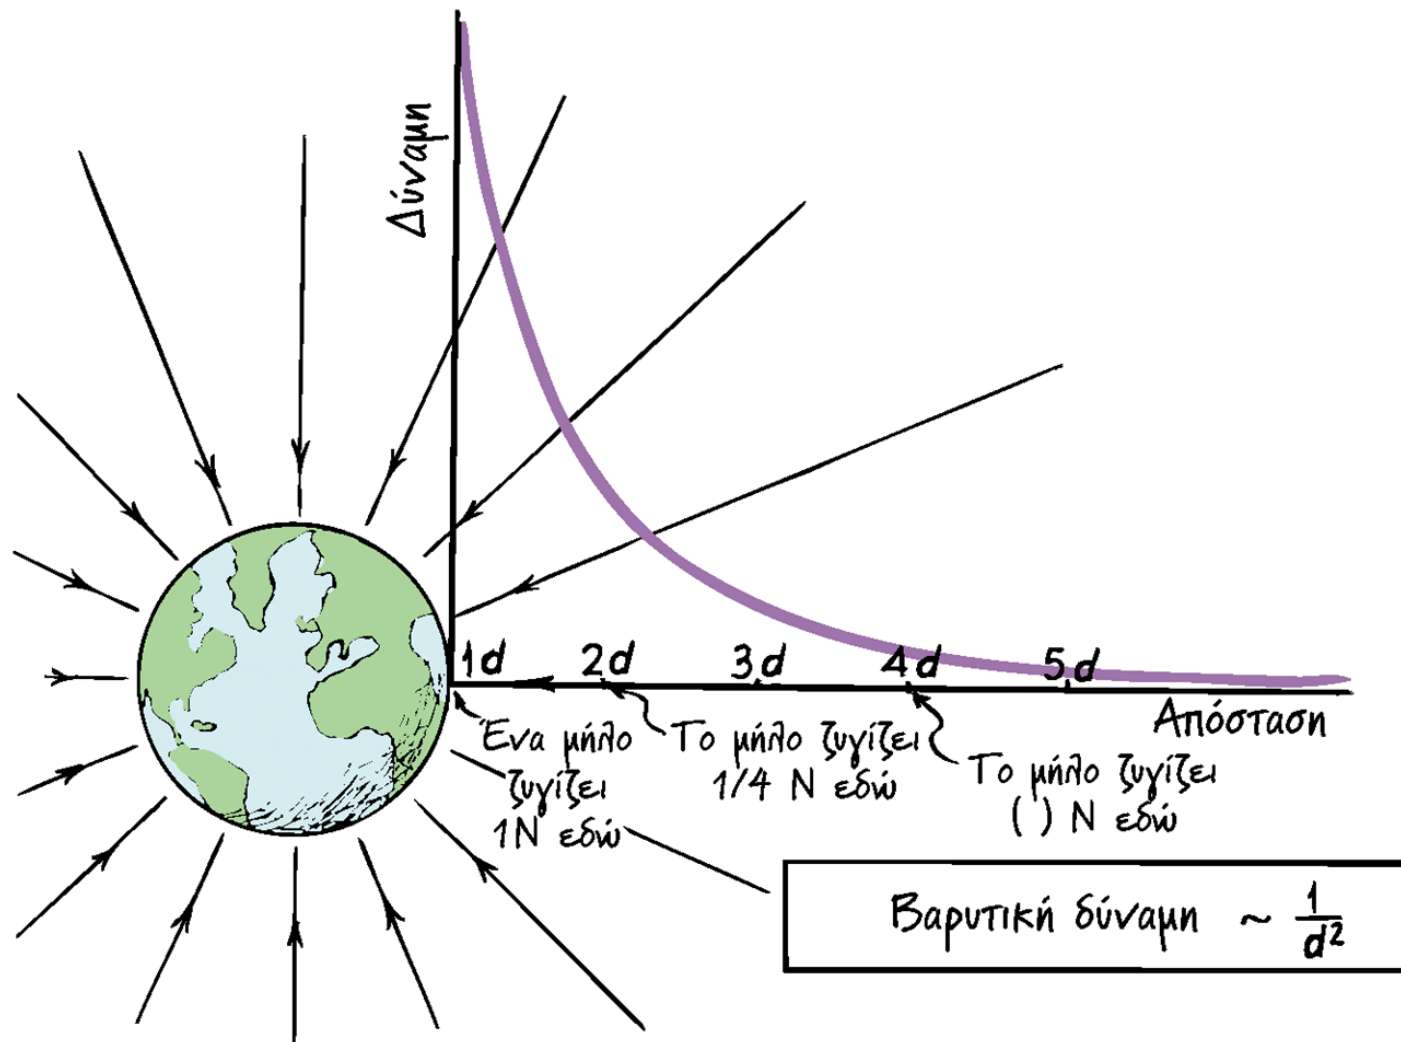 Δύναμη
1d 2d 3d 4d 5d
Απόσταση
Ένα μήλο
ζυγίζει
1N εδώ
Το μήλο ζυγίζει
1/4 N εδώ
Το μήλο ζυγίζει
( ) N εδώ
Βαρυτική δύναμη ~ 1/d²